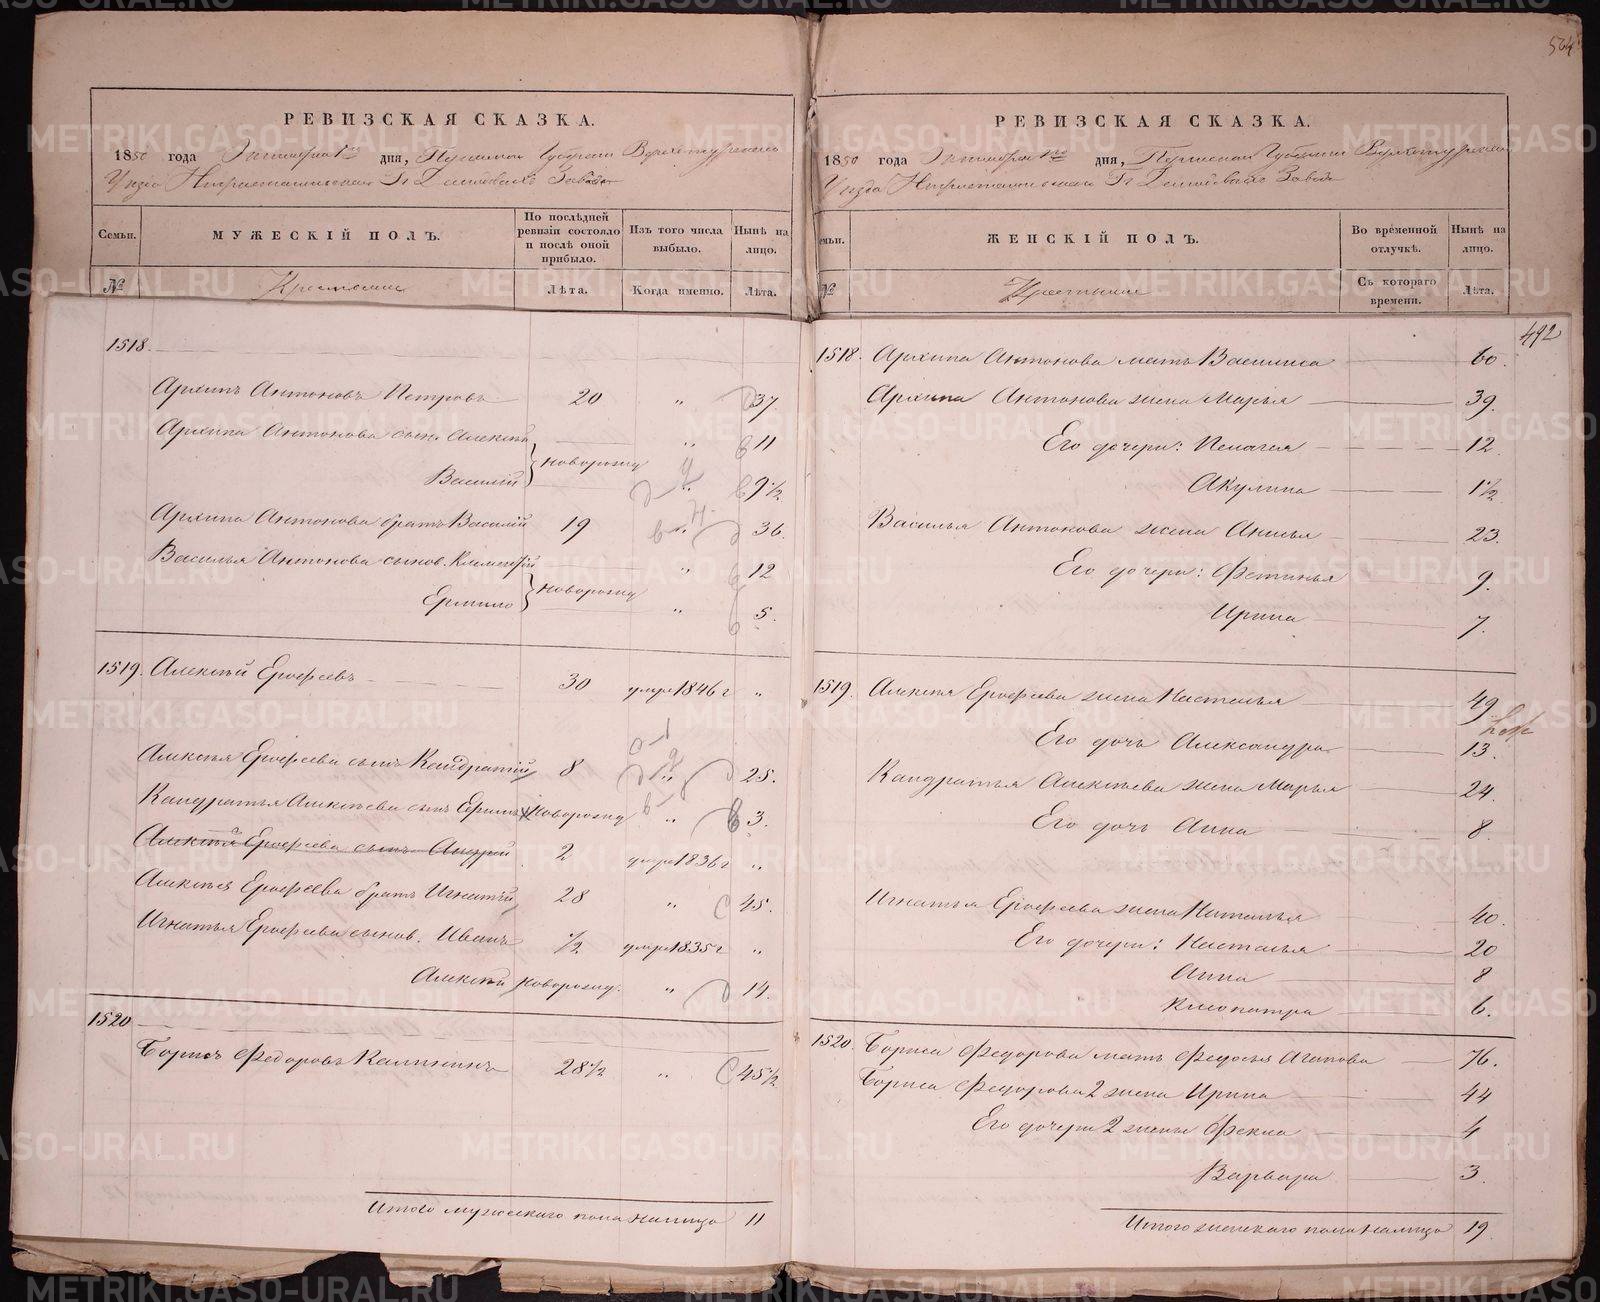 524
РЕВИЗСКАЯ СКАЗКА.
1850 года Октября 1го дня, Пермской Губернии Верхотурскаго
Уезда Нижнетагильскаго Гг. Демидовых Завода
Семьи.
МУЖЕСКІЙ ПОЛЪ.
По послѣдней ревизіи состояло и послѣ оной прибыло.
Изъ того числа выбыло.
Нынѣ на лицо.
№
Крестьяне
Лѣта.
Когда именно.
Лѣта.
1518.
Архипъ Антоновъ Петровъ 20 „ 37.
Архипа Антонова сын. Алексѣй „ 11
новорожд
Василій „ 9½
Архипа Антонова братъ Василій 19 „ 36.
Василья Антонова сынов. Климентій „ 12
новорожд
Ермило „ 5.
1519. Алексѣй Ерофеевъ 30 умре 1846 г „
Алексѣя Ерофеева сынъ Кандратій 8 „ 25.
Кандратья Алексѣева сынъ Ефимъ новорожд „ 3.
Алексѣя Ерофеева сынъ Андрей 2 умре 1836 г „
Алексѣя Ерофеева братъ Игнатій 28 „ 45.
Игнатья Ерофеева сынов. Иванъ ½ умре 1835 г „
Алексѣй новорожд. „ 14.
1520
Борисъ Федоровъ Калининъ 28½ „ 45½
Итого мужескаго пола налицо 11
РЕВИЗСКАЯ СКАЗКА.
1850 года Октября 1го дня, Пермской Губернии Верхотурскаго
Уезда Нижнетагильскаго Гг. Демидовых Завода
емьи.
ЖЕНСКІЙ ПОЛЪ.
Во временной отлучкѣ.
Нынѣ на лицо.
№
Крестьяне
Съ котораго времени.
Лѣта.
492
1518. Архипа Антонова мать Василиса 60.
Архипа Антонова жена Марья 39.
Его дочери: Пелагея 12.
Акулина 1½
Василья Антонова жена Анисья 23.
Его дочери: Фетинья 9.
Ирина 7.
1519. Алексѣя Ерофеева жена Настасья 49
Его дочь Александра 13.
Кандратья Алексѣева жена Марья 24.
Его дочь Анна 8.
Игнатья Ерофеева жена Наталья 40.
Его дочери: Настасья 20
Анна 8
Клеопатра 6.
1520. Бориса Федорова мать Федосья Агапова 76.
Бориса Федорова 2 жена Ирина 44
Его дочери 2 жены Фекла 4
Варвара 3.
Итого женскаго пола налицо 19.
METRIKI.GASO-URAL.RU